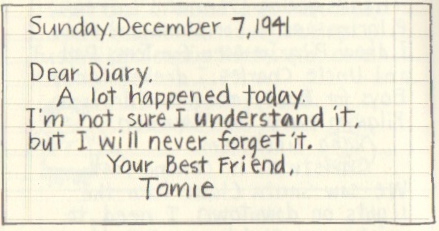 Sunday. December 7, 1941
Dear Diary.
A lot happened today.
I'm not sure I understand it,
but I will never forget it.
Your Best Friend,
Tomie